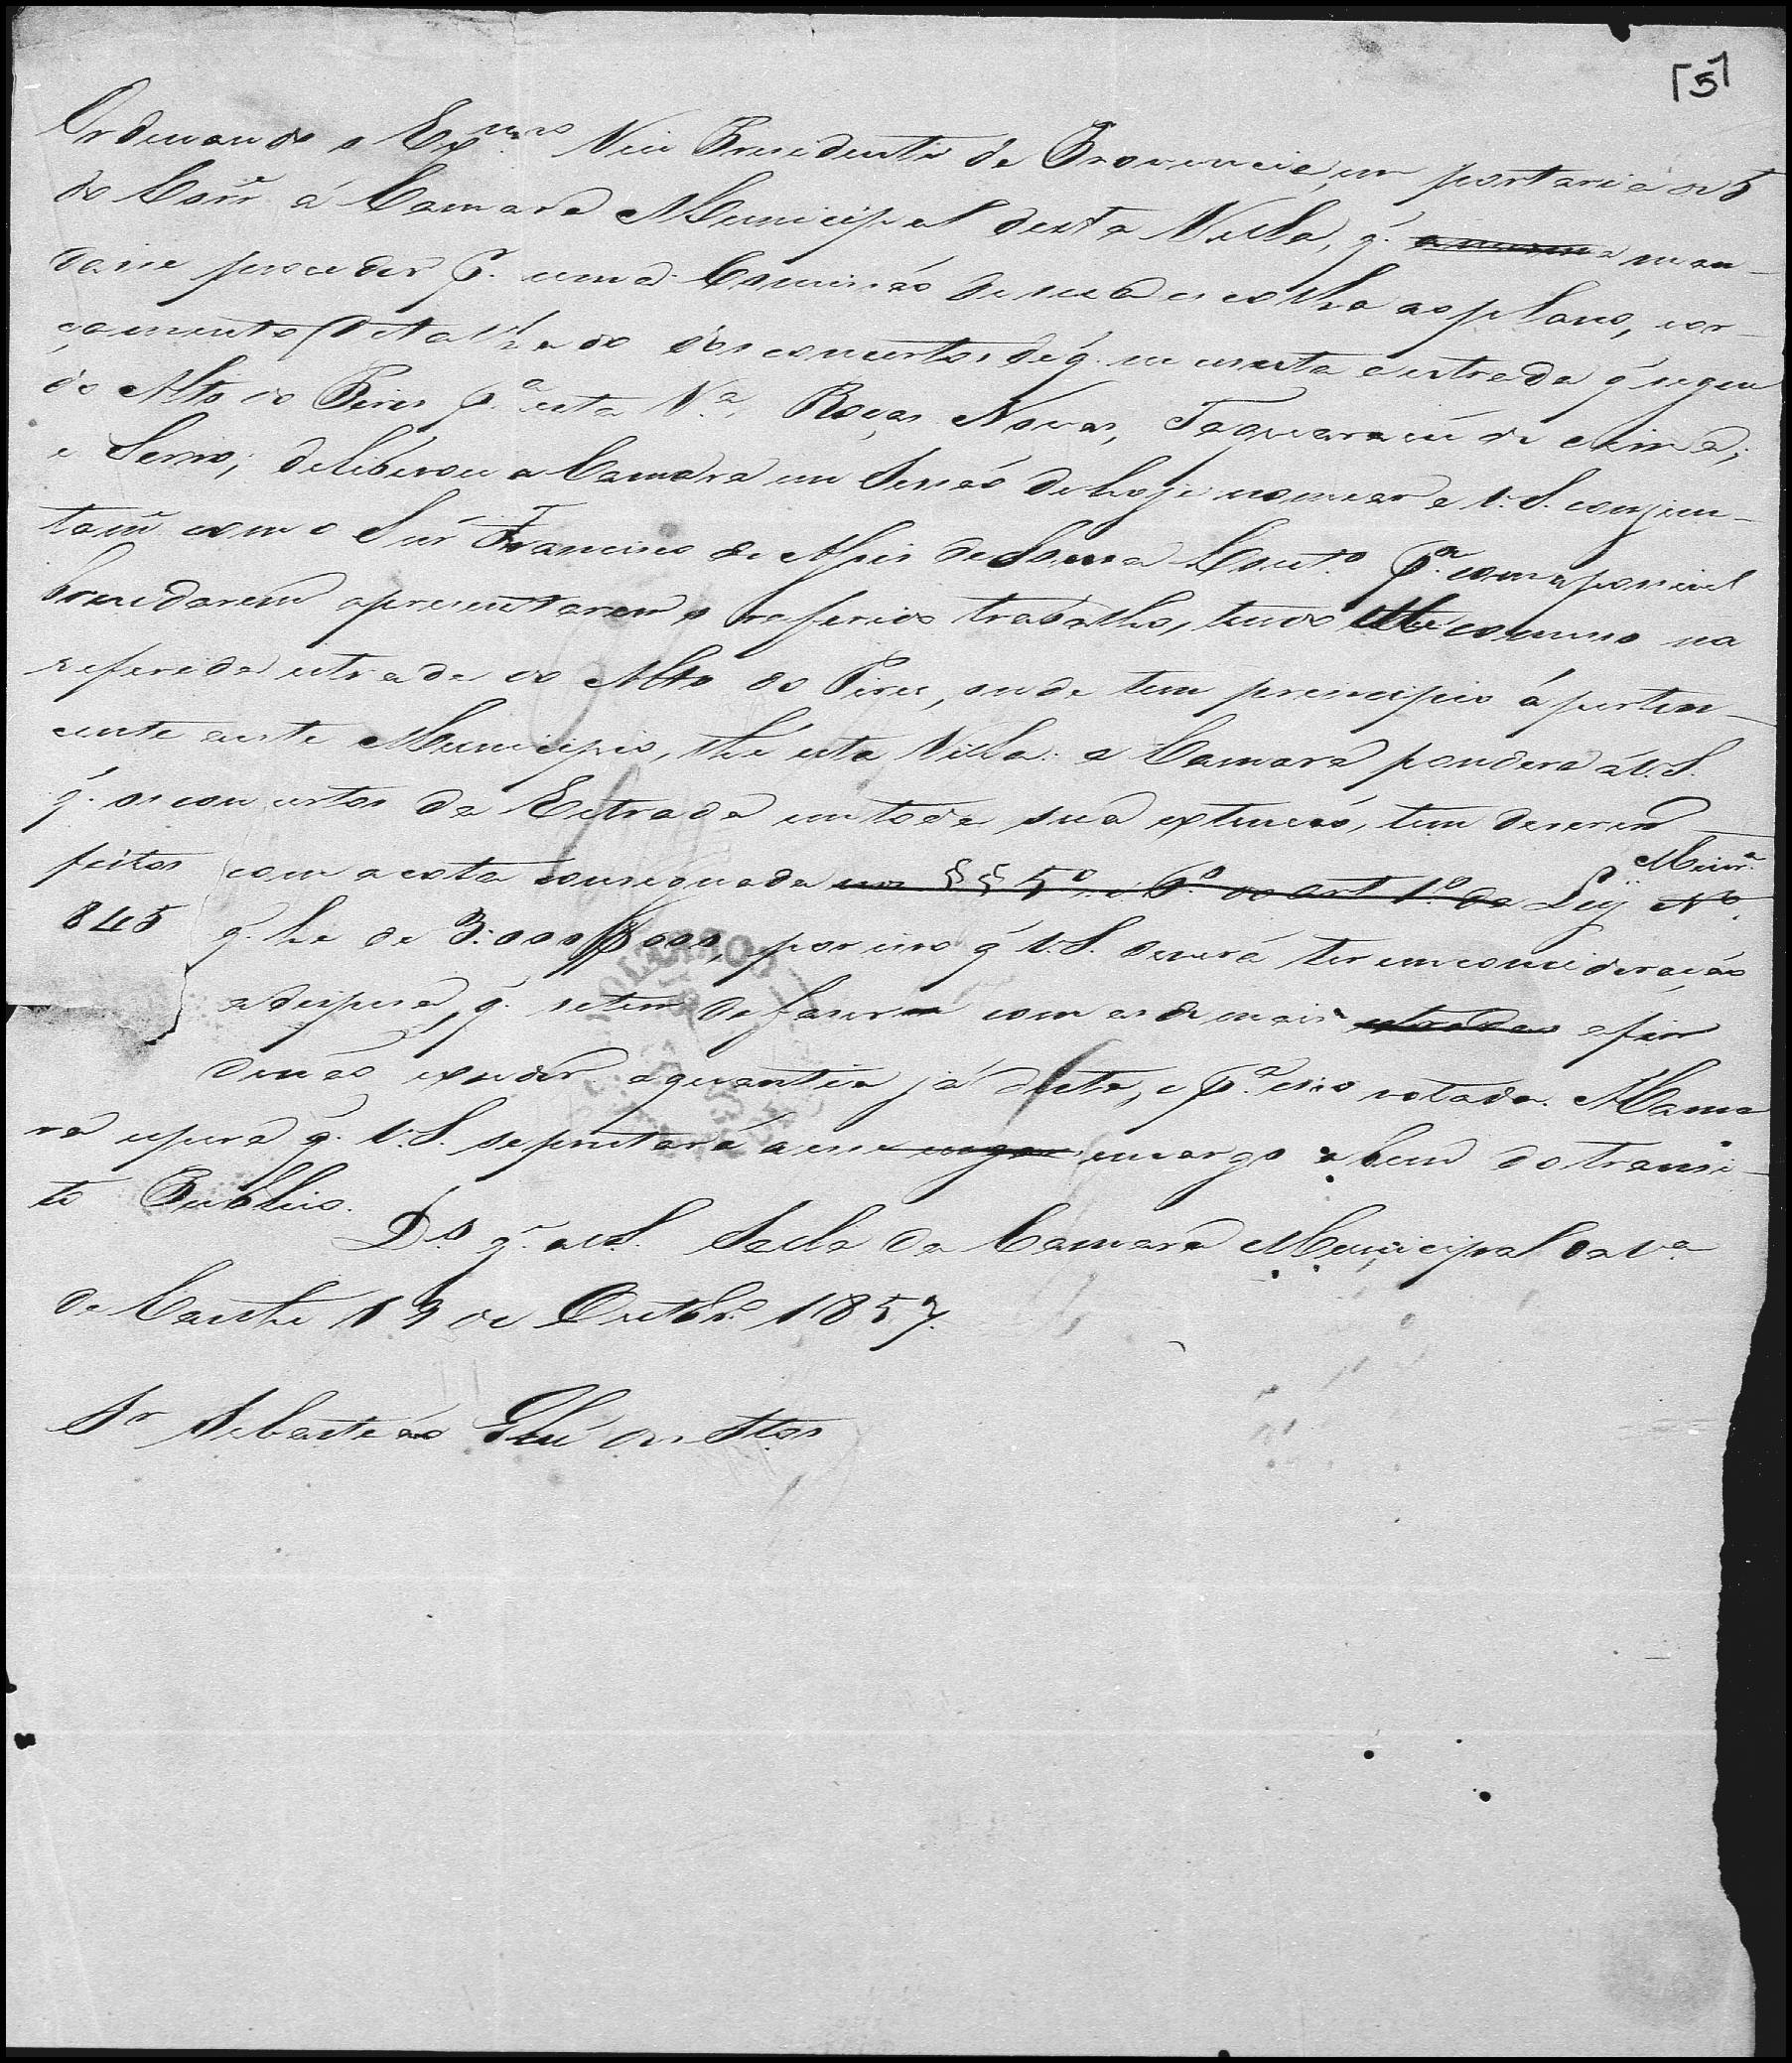 [5]
Ordenando o Exmo Vice Presidente da Provincia, em portaria de 5
do Corre á Camara Municipal desta Villa, q. a mesma man-
dasse proceder p. uma Comissão de sua escolha ao plano, e or-
çamento detalhado dos concertos de q. necessita a estrada q. segue
do Alto do Pires p.a esta V.a, Roças Novas, Taquarassú de cima,
e Serro; deliberou a Camara em Sessão de hoje nomear a V.S. conjun-
tame com o Snr Francisco de Assis de Souza Cout.o p.a com a possivel
brevidade apresentarem o referido trabalho, tendo comesso na
referida estrada do Alto do Pires, onde tem principio á perten-
cente a este Municipio, thé esta Villa: a Camara pondera á V.S.
q. os concertos da Estrada em toda sua extensão, tem de serem
feitos com a cota consignada nos §§ 5.o e 6.o do art 1.o da Ley Miner.a N.o
845 q. he de 3:000$000, por isso q. V.S. deverá ter em consideração
a despesa, q. se tem de faser com as de mais estradas a fim
de não exceder a quantia já dicta, e p.a isso votada. A Cama
ra espera q. V.S. se prestará a esse encargo a bem do transi-
to Publico.
D.s g.e a V.S. Salla da Camara Municipal da V.a
de Caethe 19 de Outbr.o 1857.
Sr Sebastião José dos Stos